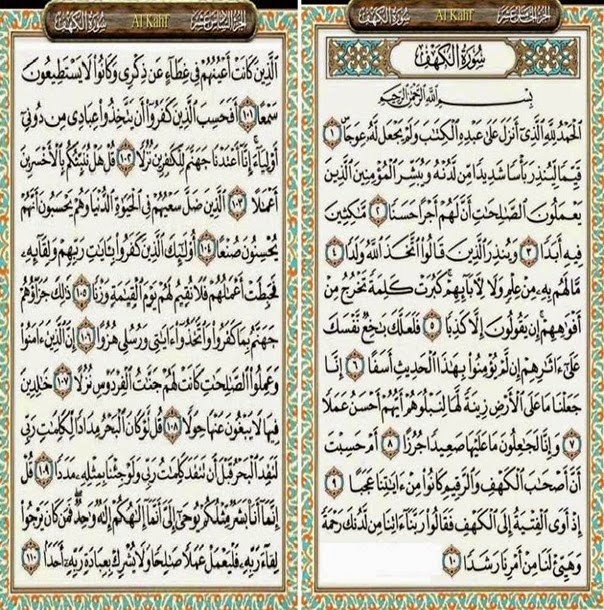 الجزء الخامس عشر Al Kahf سورة الكهف
سورة الكهف
بسم الله الرحمن الرحيم
الْحَمْدُ لِلَّهِ الَّذِي أَنزَلَ عَلَىٰ عَبْدِهِ الْكِتَٰبَ وَلَمْ يَجْعَل لَّهُ عِوَجًا ١
قَيِّمًا لِّيُنذِرَ بَأْسًا شَدِيدًا مِّن لَّدُنْهُ وَيُبَشِّرَ الْمُؤْمِنِينَ الَّذِينَ
يَعْمَلُونَ الصَّٰلِحَٰتِ أَنَّ لَهُمْ أَجْرًا حَسَنًا ٢ مَّٰكِثِينَ
فِيهِ أَبَدًا ٣ وَيُنذِرَ الَّذِينَ قَالُوا اتَّخَذَ اللَّهُ وَلَدًا ٤
مَّا لَهُم بِهِ مِنْ عِلْمٍ وَلَا لِءَابَآئِهِمْ كَبُرَتْ كَلِمَةً تَخْرُجُ مِنْ
أَفْوَٰهِهِمْ إِن يَقُولُونَ إِلَّا كَذِبًا ٥ فَلَعَلَّكَ بَٰخِعٌ نَّفْسَكَ
عَلَىٰ ءَاثَٰرِهِمْ إِن لَّمْ يُؤْمِنُوا بِهَٰذَا الْحَدِيثِ أَسَفًا ٦ إِنَّا
جَعَلْنَا مَا عَلَى الْأَرْضِ زِينَةً لَّهَا لِنَبْلُوَهُمْ أَيُّهُمْ أَحْسَنُ عَمَلًا
٧ وَإِنَّا لَجَٰعِلُونَ مَا عَلَيْهَا صَعِيدًا جُرُزًا ٨ أَمْ حَسِبْتَ
أَنَّ أَصْحَٰبَ الْكَهْفِ وَالرَّقِيمِ كَانُوا مِنْ ءَايَٰتِنَا عَجَبًا ٩
إِذْ أَوَى الْفِتْيَةُ إِلَى الْكَهْفِ فَقَالُوا رَبَّنَا ءَاتِنَا مِن لَّدُنكَ رَحْمَةً
وَهَيِّئْ لَنَا مِنْ أَمْرِنَا رَشَدًا ١٠
الجزء السادس عشر Al Kahf سورة الكهف
الَّذِينَ كَانَتْ أَعْيُنُهُمْ فِي غِطَآءٍ عَن ذِكْرِي وَكَانُوا لَا يَسْتَطِيعُونَ
سَمْعًا ١٠١ أَفَحَسِبَ الَّذِينَ كَفَرُوا أَن يَتَّخِذُوا عِبَادِي مِن دُونِي
أَوْلِيَآءَ إِنَّا أَعْتَدْنَا جَهَنَّمَ لِلْكَٰفِرِينَ نُزُلًا ١٠٢ قُلْ هَلْ نُنَبِّئُكُم بِالْأَخْسَرِينَ
أَعْمَٰلًا ١٠٣ الَّذِينَ ضَلَّ سَعْيُهُمْ فِي الْحَيَوٰةِ الدُّنْيَا وَهُمْ يَحْسَبُونَ أَنَّهُمْ
يُحْسِنُونَ صُنْعًا ١٠٤ أُولَٰٓئِكَ الَّذِينَ كَفَرُوا بِـَٔايَٰتِ رَبِّهِمْ وَلِقَآئِهِ
فَحَبِطَتْ أَعْمَٰلُهُمْ فَلَا نُقِيمُ لَهُمْ يَوْمَ الْقِيَٰمَةِ وَزْنًا ١٠٥ ذَٰلِكَ جَزَآؤُهُمْ
جَهَنَّمُ بِمَا كَفَرُوا وَاتَّخَذُوا ءَايَٰتِي وَرُسُلِي هُزُوًا ١٠٦ إِنَّ الَّذِينَ ءَامَنُوا
وَعَمِلُوا الصَّٰلِحَٰتِ كَانَتْ لَهُمْ جَنَّٰتُ الْفِرْدَوْسِ نُزُلًا ١٠٧ خَٰلِدِينَ
فِيهَا لَا يَبْغُونَ عَنْهَا حِوَلًا ١٠٨ قُل لَّوْ كَانَ الْبَحْرُ مِدَادًا لِّكَلِمَٰتِ رَبِّي
لَنَفِدَ الْبَحْرُ قَبْلَ أَن تَنفَدَ كَلِمَٰتُ رَبِّي وَلَوْ جِئْنَا بِمِثْلِهِ مَدَدًا ١٠٩ قُلْ
إِنَّمَآ أَنَا بَشَرٌ مِّثْلُكُمْ يُوحَىٰٓ إِلَيَّ أَنَّمَآ إِلَٰهُكُمْ إِلَٰهٌ وَٰحِدٌ فَمَن كَانَ يَرْجُوا
لِقَآءَ رَبِّهِ فَلْيَعْمَلْ عَمَلًا صَٰلِحًا وَلَا يُشْرِكْ بِعِبَادَةِ رَبِّهِ أَحَدًا ١١٠